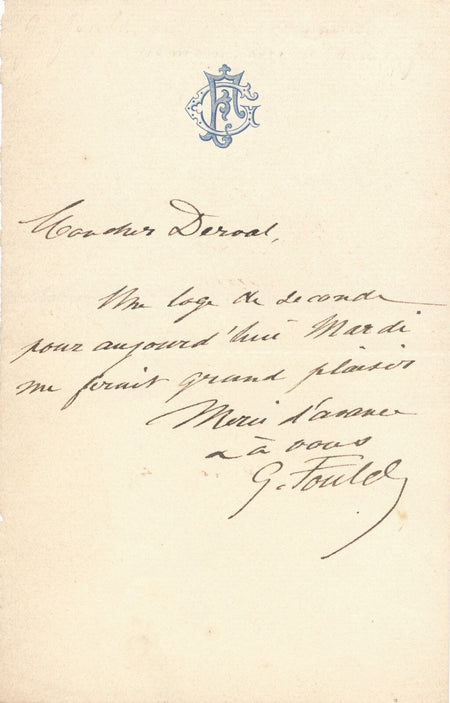 Mon cher Derval,
Une loge de seconde
pour aujourd'hui Mardi
me ferait grand plaisir
Merci d'avance
à vous
G. Fould